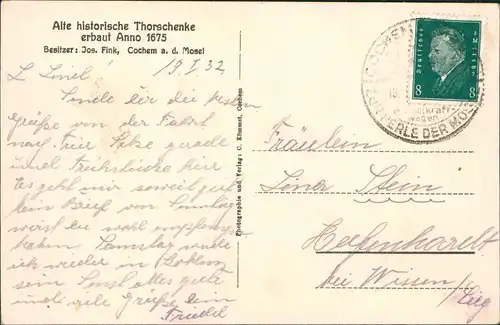 Alte historische Thorschenke
erbaut Anno 1675
Besitzer: Jos. Fink, Cochem a. d. Mosel
19. I. 32
Sende dir die besten
Grüße von der Fahrt
nach hier Sitze gerade
und Frühstücke hier
Es geht mir soweit gut
kein Brief von Sonntag
wirst du wohl empfangen
haben Samstag
ich wieder in
sein Sonst alles gute
und viele Grüße dein
Friedel
Photographie und Verlag: C. Cochem
Deutsches Reich
8 8
COCHEM
PERLE DER MOSEL
Fräulein
Lina Stein
Helfenhardt
bei Wissen/Sieg